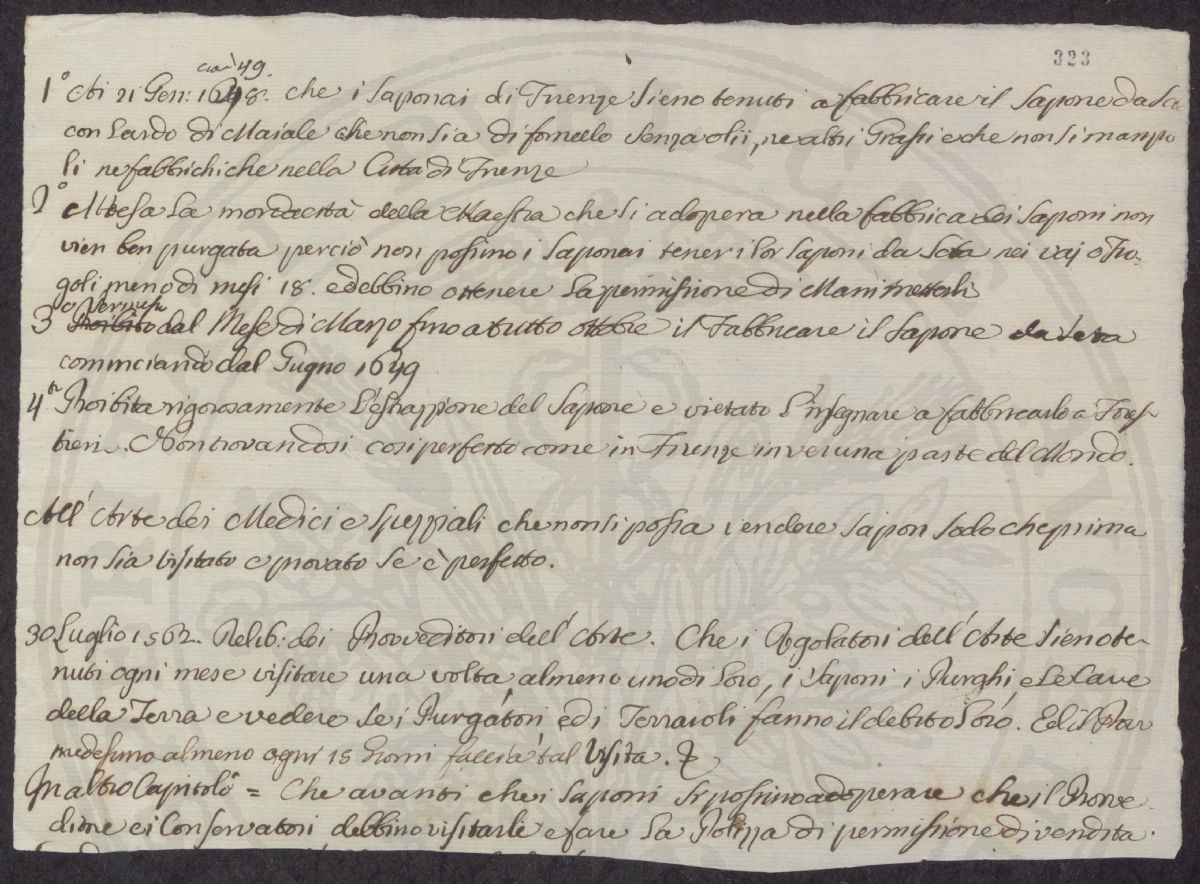 323
cioè 49.
1° Ai 21 Gen: 1648. che i Saponai di Firenze sieno tenuti a fabbricare il Sapone da Se
con Lardo di Maiale che non sia di fornello senza olii, ne altri Grassi e che non si manipo
li ne fabbrichi che nella Città di Firenze
2° Attesa La mordacità della Maestra che si adopera nella fabbrica dei Saponi non
vien ben purgata perciò non possino i Saponai tener i lor saponi da Seta nei vasi o Tru-
goli meno di mesi 18. e debbino ottenere La permissione di
3° Proibito dal Mese di Marzo fino a tutto ottobre il Fabbricare il Sapone da Seta
cominciando dal Giugno 1649
4° Proibita rigorosamente L'estrazzione del Sapone e vietato L'insegnare a fabbricarlo a Fores-
tieri. Non trovandosi cosi perfetto come in Firenze in veruna parte del Mondo.
All' Arte dei Medici e Spezziali che non si possa vendere Sapon Sodo che prima
non sia visitato e provato se è perfetto.
30 Luglio 1562. Delib: dei Provveditori dell' Arte. Che i Regolatori dell' Arte sieno te-
nuti ogni mese visitare una volta almeno uno di Loro, i Saponi i Purghi e Le Cave
della Terra e vedere se i Purgatori ed i Terraioli fanno il debito Loro. Ed il
medesimo almeno ogni 15 Giorni faccia tal Visita.
In altro Capitolo = Che avanti che i Saponi si possino adoperare che il Prove-
ditore e i Conservatori debbino visitarli e fare La Polizza di permissione di vendita.